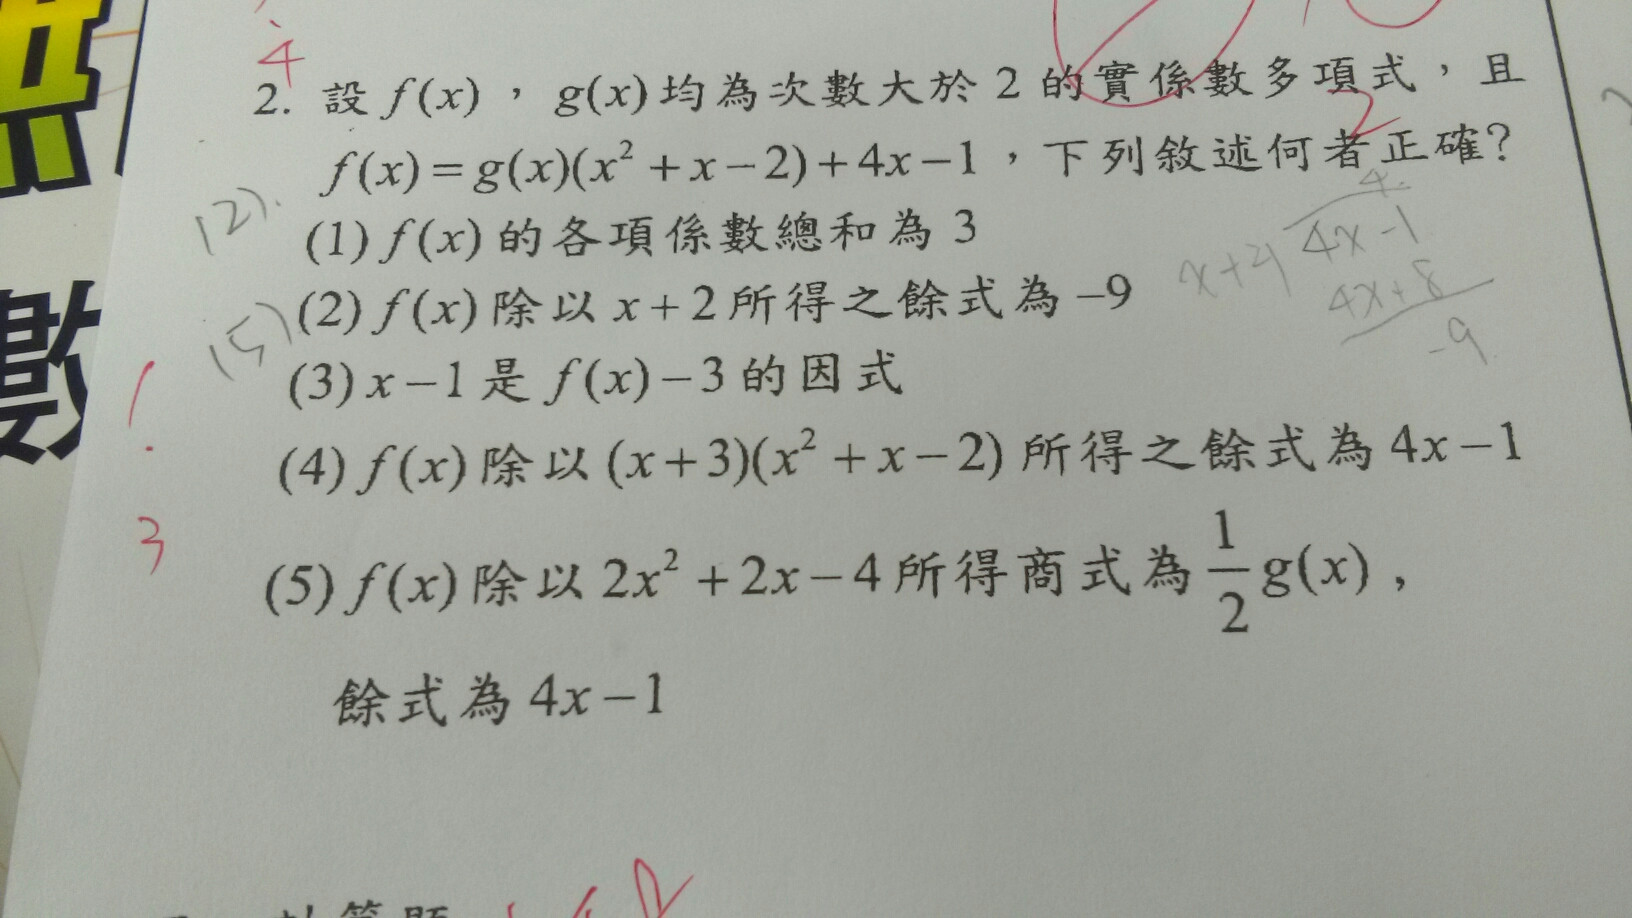 4
2. 設 f(x)，g(x)均為次數大於 2 的實係數多項式，且
2
f(x)=g(x)(x²+x−2)+4x−1，下列敘述何者正確？
(2).
(1) f(x)的各項係數總和為 3
4
x+2 4x-1
4x+8
-9
(5)
(2) f(x)除以 x+2所得之餘式為 −9
(3) x−1是 f(x)−3的因式
1
(4) f(x)除以 (x+3)(x²+x−2) 所得之餘式為 4x−1
3
(5) f(x)除以 2x²+2x−4所得商式為 1/2 g(x)，
餘式為 4x−1
數